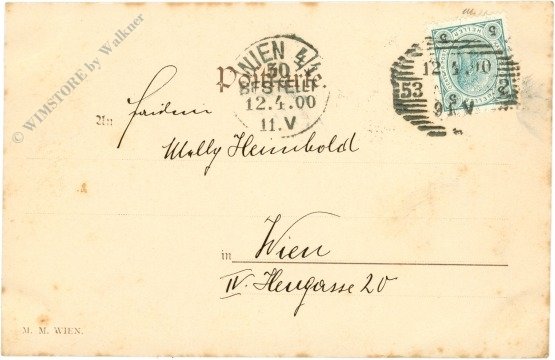 © WIMSTORE by Walkner
Postkarte.
WIEN 4/1
50
BESTELLT
12.4.00
11.V
53
12.4.00
9
An
Molly Heimbold
in Wien
IV. Heugasse 20
M. M. WIEN.